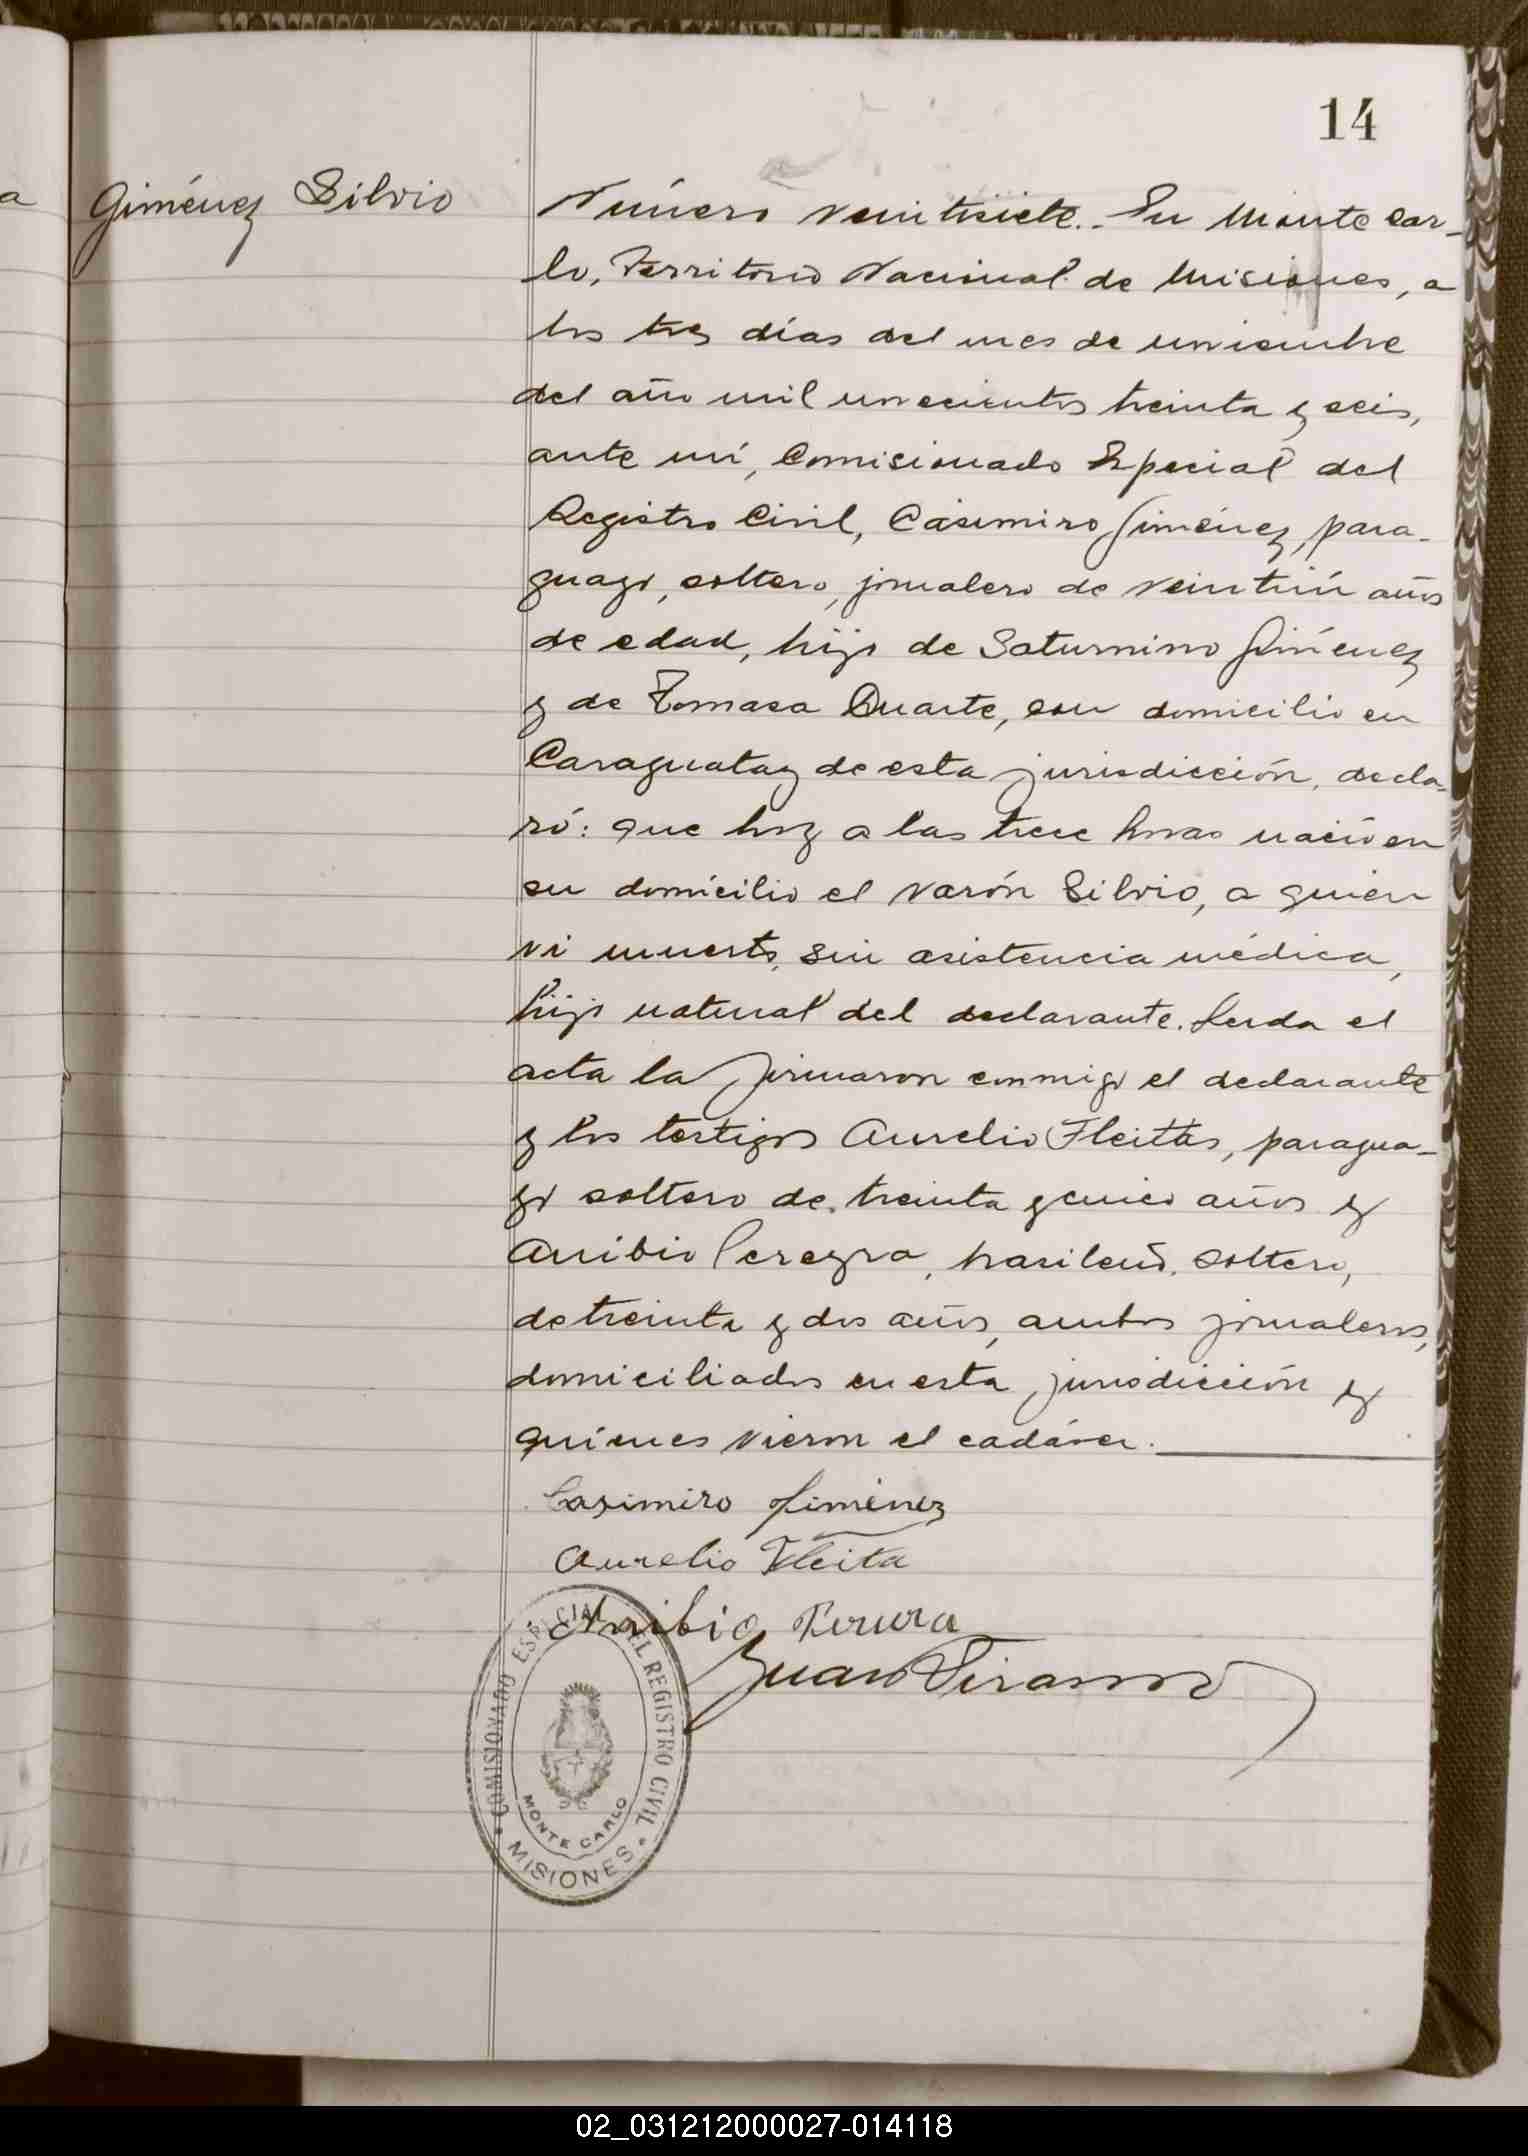 14
Giménez Silvio
Número veintisiete.- En Monte Car-
lo, Territorio Nacional de Misiones, a
los tres días del mes de noviembre
del año mil novecientos treinta y seis,
ante mí, Comisionado Especial del
Registro Civil, Casimiro Giménez, para-
guayo, soltero, jornalero de veintiún años
de edad, hijo de Saturnino Giménez
y de Tomasa Duarte, con domicilio en
Caraguatay de esta jurisdicción, decla-
ró: que hoy a las trece horas nació en
su domicilio el varón Silvio, a quien
vi muerto, sin asistencia médica,
hijo natural del declarante. Leída el
acta la firmaron conmigo el declarante
y los testigos Aurelio Fleitas, paragua-
yo soltero de treinta y cinco años y
Anibio Pereyra, brasileño, soltero,
de treinta y dos años, ambos jornaleros,
domiciliados en esta jurisdicción y
quienes vieron el cadáver.
Casimiro Jiménez
Aurelio Fleita
Anibio
Juan
COMISIONADO ESPECIAL DEL REGISTRO CIVIL
MONTE CARLO
MISIONES
02_031212000027-014118